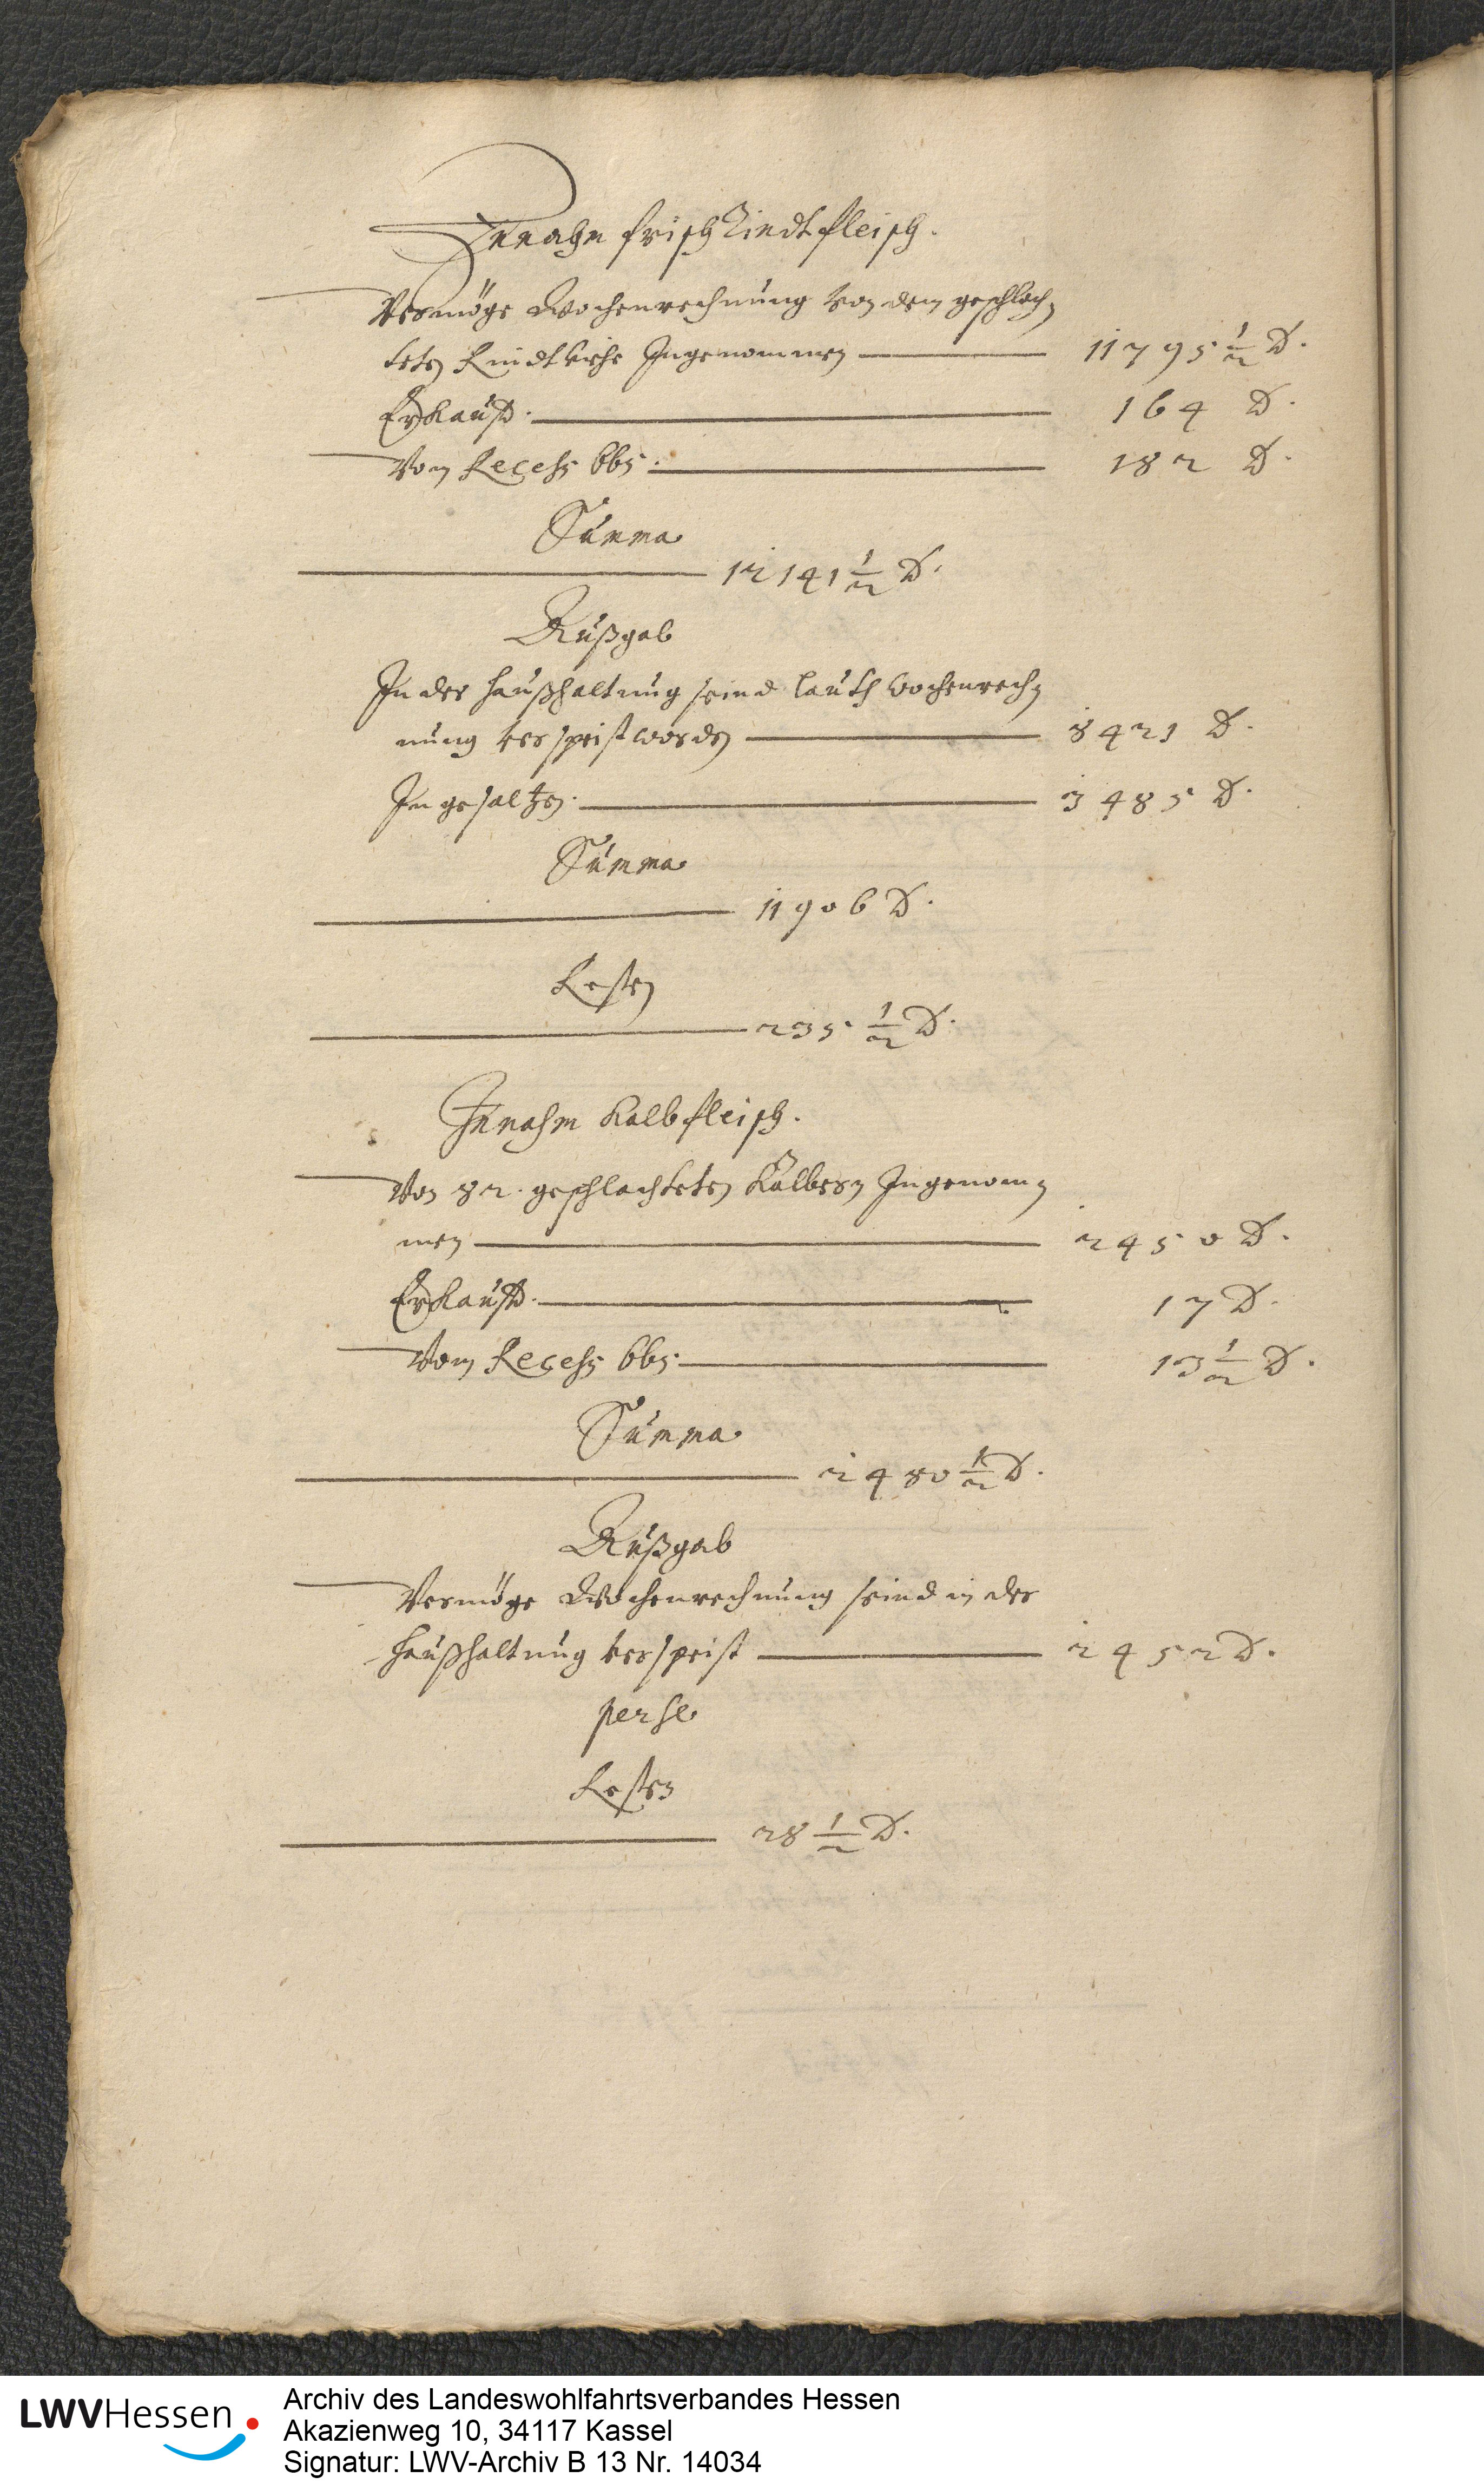 Innahm frisch Rindtfleisch.
Vermöge Wochenrechnung von dem geschlach¬
teten Rindtviehe Ingenommen 11795 1/2 ℔.
Erkaufft. 164 ℔.
Vom Recess 665. 182 ℔.
Summa
12141 1/2 ℔.
Außgab
In der Haußhaltung seind lauth Wochenrech¬
nung verspeist worden 8421 ℔.
Ingesaltzen. 3485 ℔.
Summa
11906 ℔.
Resten
235 1/2 ℔.
Innahm Kalbfleisch.
Von 82. geschlachteten Kälbern Ingenom¬
men 2450 ℔.
Erkaufft. 17 ℔.
Vom Recess 665. 13 1/2 ℔.
Summa
2480 1/2 ℔.
Außgab
Vermöge Wochenrechnung seind in der
Haußhaltung verspeist 2452 ℔.
per se
Resten
28 1/2 ℔.
LWVHessen
Archiv des Landeswohlfahrtsverbandes Hessen
Akazienweg 10, 34117 Kassel
Signatur: LWV-Archiv B 13 Nr. 14034